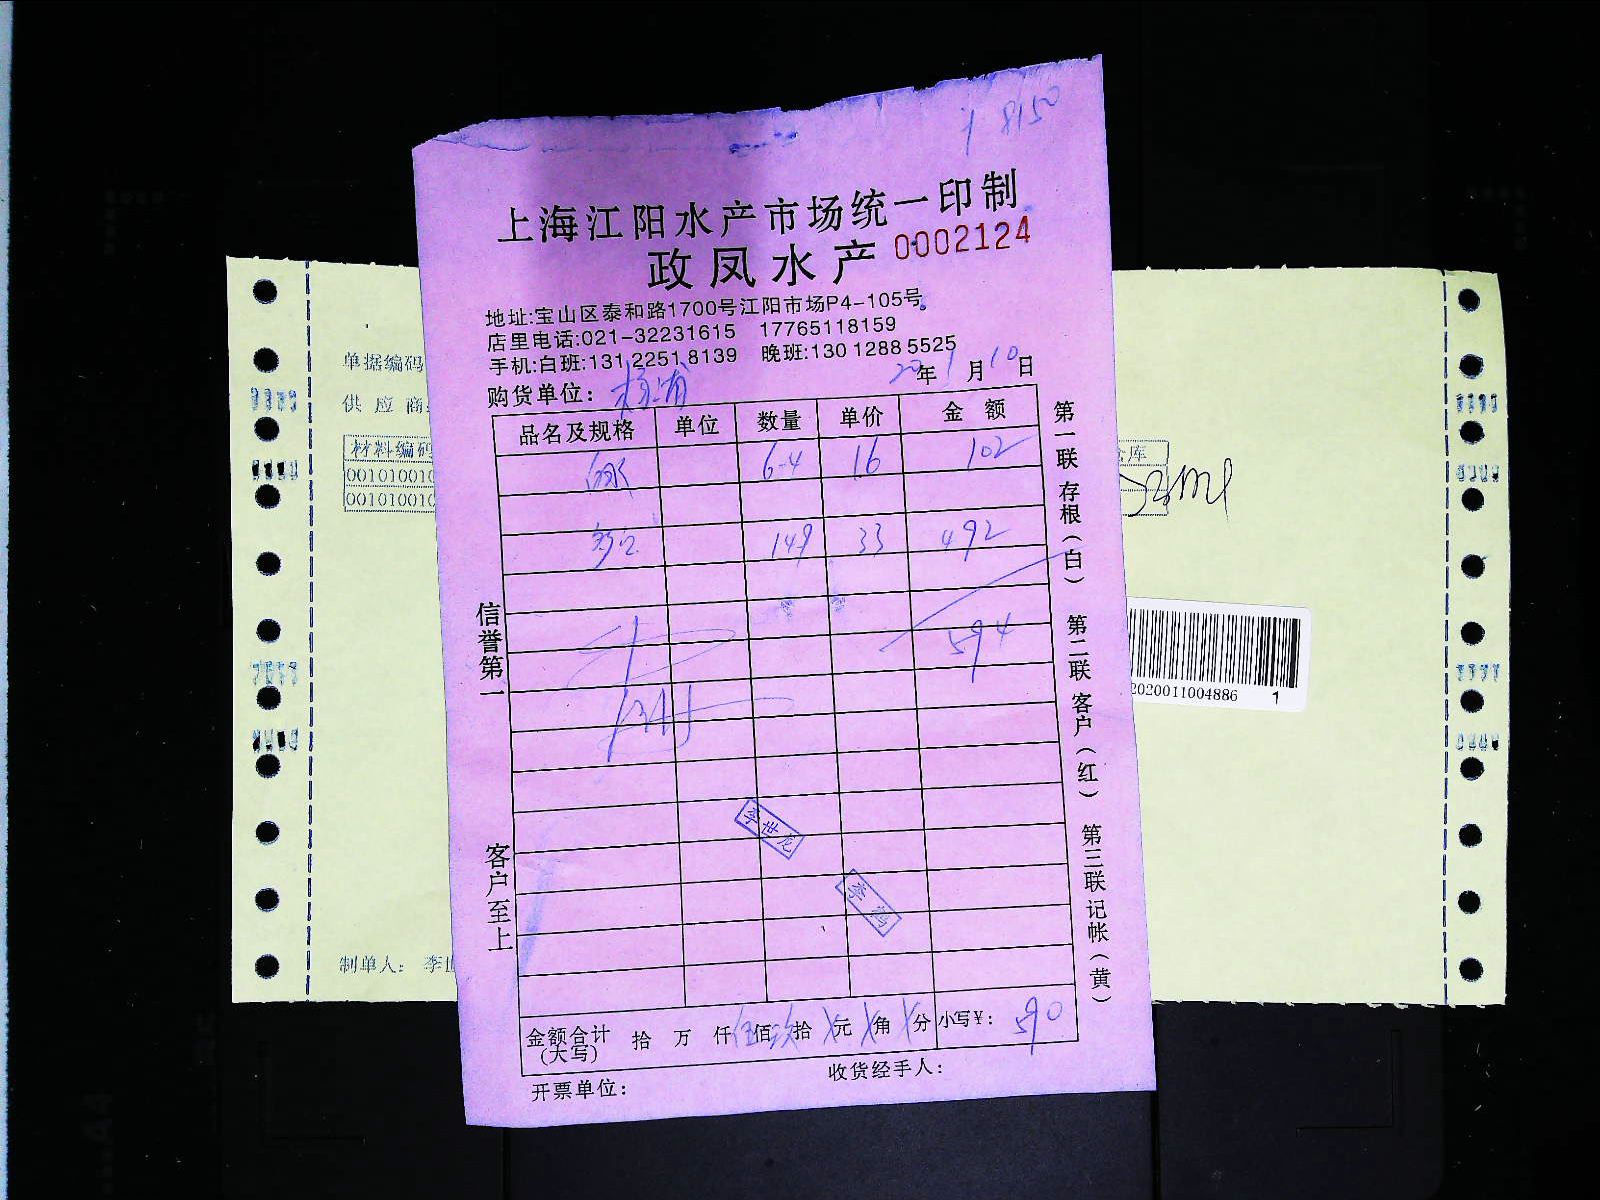 8150
上海江阳水产市场统一印制
政凤水产 0002124
地址:宝山区泰和路1700号江阳市场P4-105号。
店里电话:021-32231615 17765118159
手机:白班:131 2251 8139 晚班:130 1288 5525
购货单位: 杨浦 20年1月10日
品名及规格 单位 数量 单价 金额
6-4 16 102
149 33 492
594
信誉第一
客户至上
李世龙
李鸿
金额合计(大写) 拾 万 仟伍佰玖拾 元 角 分 小写¥: 590
开票单位: 收货经手人:
第一联 存根(白) 第二联 客户(红) 第三联 记帐(黄)
单据编码
供应商
材料编码
001010010
001010010
库
2020011004886 1
制单人: 李世